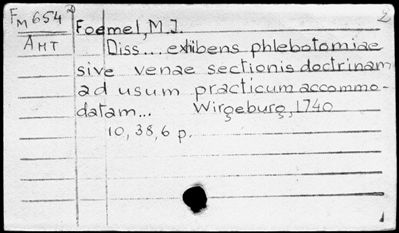 Fm 654²
Амт
2
Foemel, M.J.
Diss... exhibens phlebotomiae
sive venae sectionis doctrinam
ad usum practicum accommo-
datam... Wirçeburç, 1740
10, 38, 6 p.